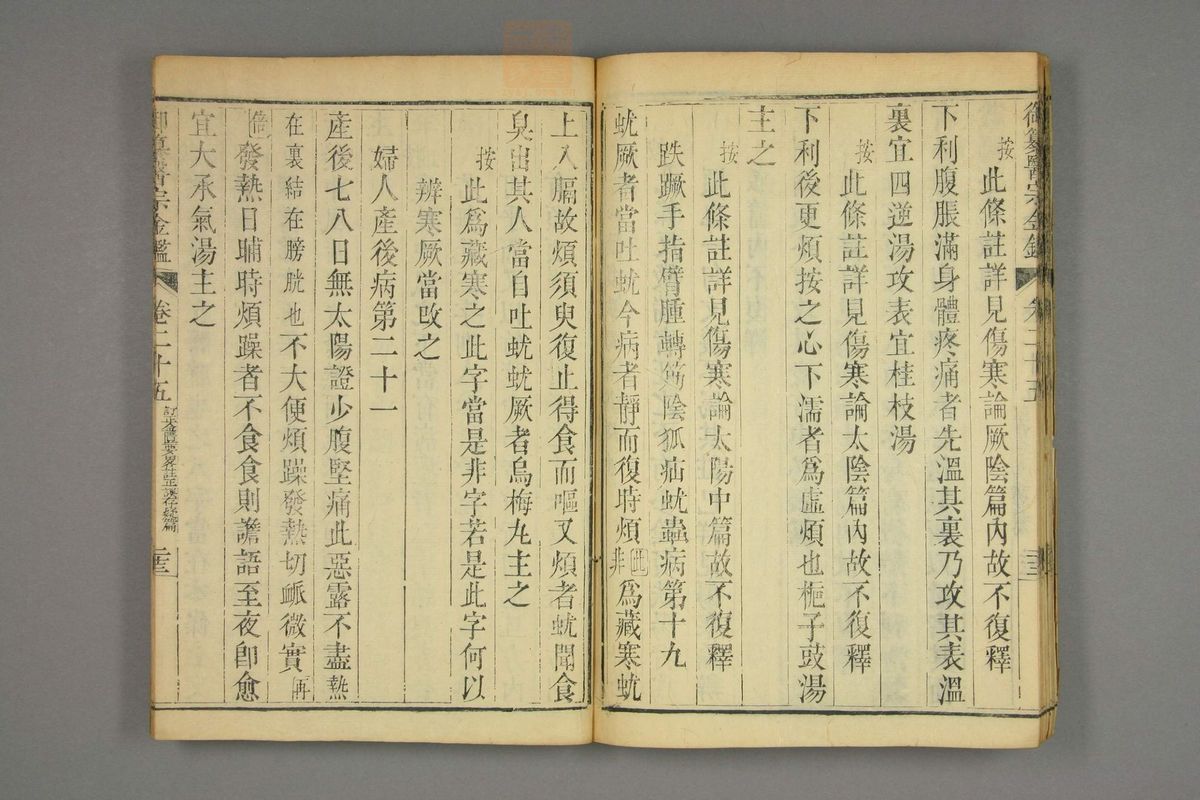 御纂醫宗金鑑 卷二十五
按此條註詳見傷寒論厥陰篇內故不復釋
下利腹脹滿身體疼痛者先溫其裏乃攻其表溫
裏宜四逆湯攻表宜桂枝湯
按此條註詳見傷寒論太陰篇內故不復釋
下利後更煩按之心下濡者爲虛煩也梔子豉湯
主之
按此條註詳見傷寒論太陽中篇故不復釋
趺蹶手指臂腫轉筋陰狐疝蚘蟲病第十九
蚘厥者當吐蚘今病者靜而復時煩此非爲藏寒蚘
上入膈故煩須臾復止得食而嘔又煩者蚘聞食
臭出其人當自吐蚘蚘厥者烏梅丸主之
按此爲藏寒之此字當是非字若是此字何以
辨寒厥當改之
婦人產後病第二十一
產後七八日無太陽證少腹堅痛此惡露不盡熱
在裏結在膀胱也不大便煩躁發熱切脈微實再
倍發熱日晡時煩躁者不食食則譫語至夜卽愈
宜大承氣湯主之
御纂醫宗金鑑 卷二十五 訂正金匱要畧註正誤存疑篇 二三